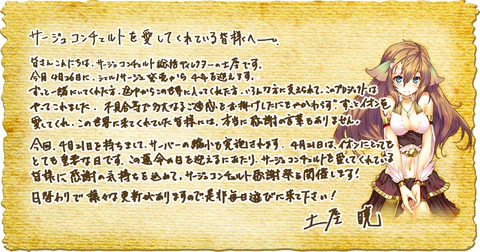 サージュコンチェルトを愛してくれている皆様へ―。
皆さんこんにちは、サージュコンチェルト総括ディレクターの土屋です。
今月4月26日に、シェルノサージュ発売から4年を迎えます。
ずっと一緒にいてくれた方、途中からこの世界に入ってくれた方、いろんな方に支えられて、このプロジェクトは
やってこれました。不具合等で多大なるご迷惑をお掛けしたにもかかわらず、ずっとイオンを
愛してくれ、この世界に来てくれていた皆様には、本当に感謝の言葉もありません。
今回、4月21日を持ちまして、サーバーの縮小も実施されます。4月21日は、イオンにとっても
とても重要な日です。この運命の日を迎えるにあたり、サージュコンチェルトを愛してくれている
皆様に感謝の気持ちを込めて、サージュコンチェルト感謝祭を開催します!
日替わりで様々な更新がありますので是非毎日遊びに来て下さい!
土屋 暁